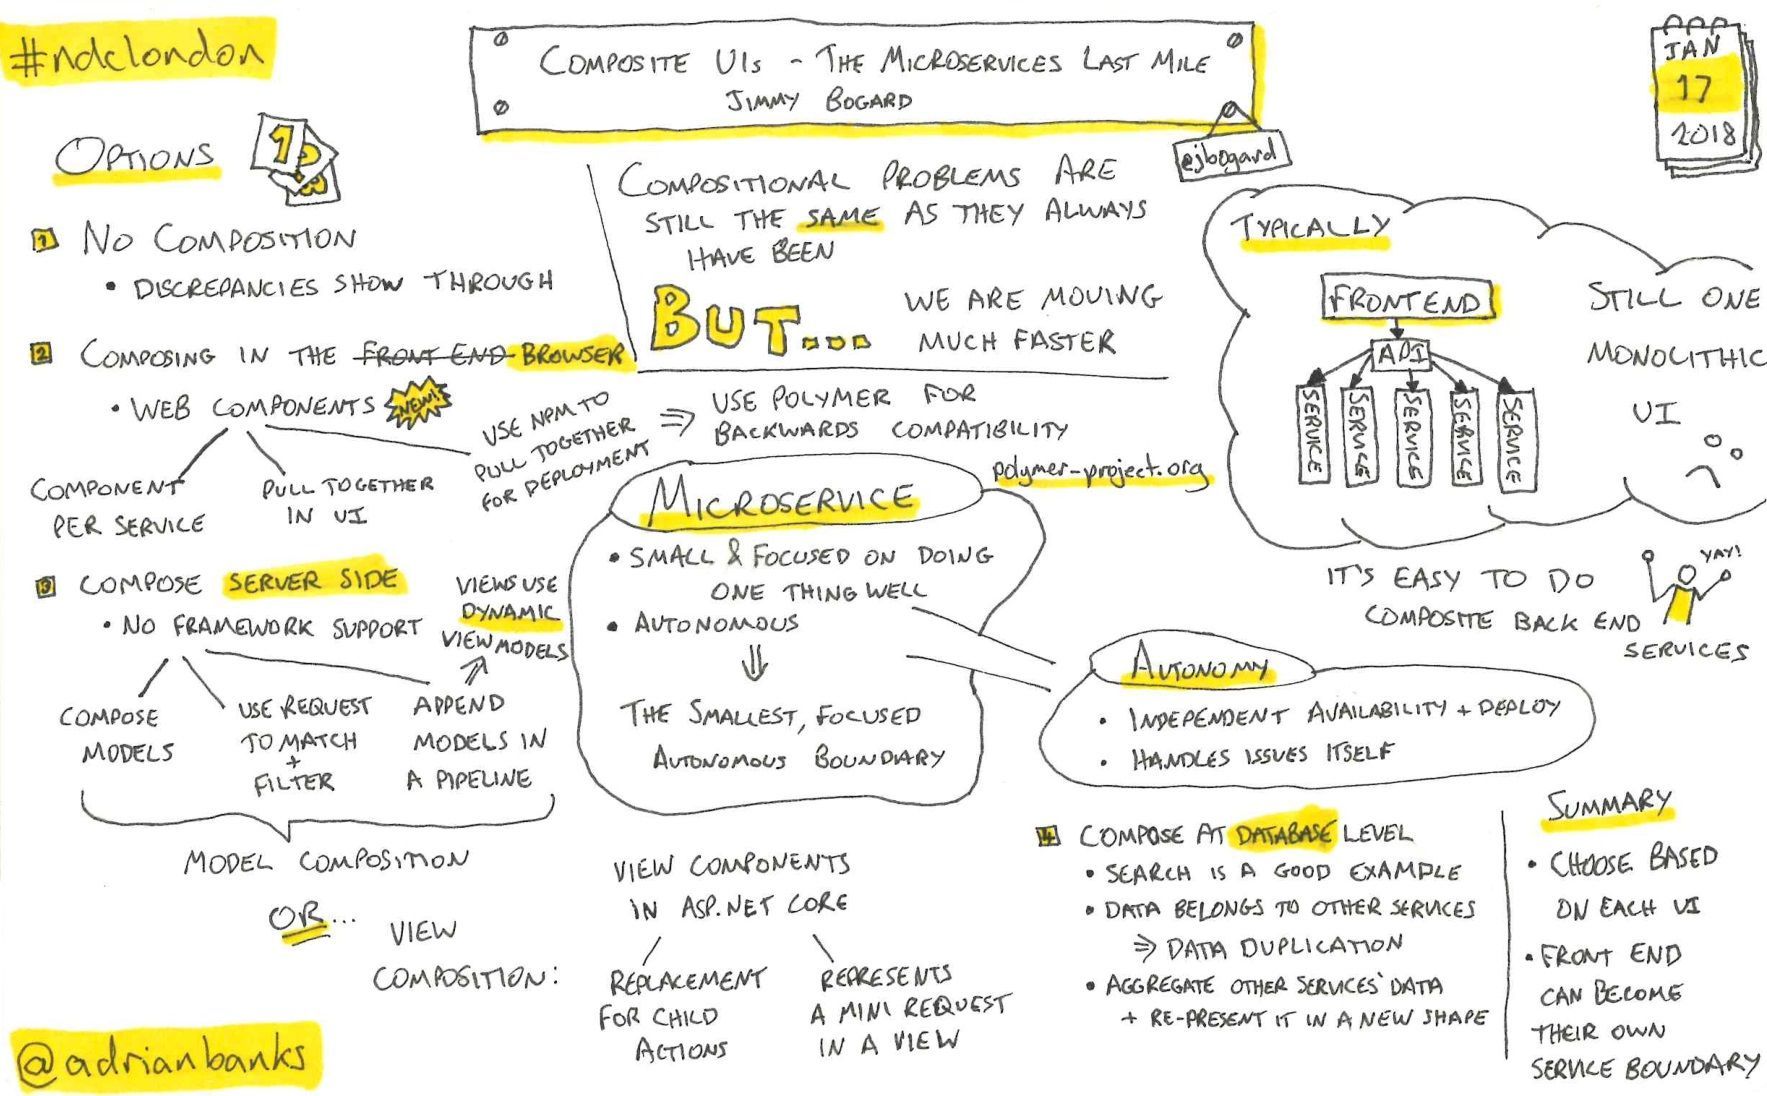 #ndclondon
COMPOSITE UIs - THE MICROSERVICES LAST MILE
JIMMY BOGARD
@jbogard
JAN
17
2018
OPTIONS
1
2
3
1 NO COMPOSITION
• DISCREPANCIES SHOW THROUGH
2 COMPOSING IN THE FRONT END BROWSER
• WEB COMPONENTS NEW!
COMPONENT
PER SERVICE
PULL TOGETHER
IN UI
USE NPM TO
PULL TOGETHER
FOR DEPLOYMENT
⇒ USE POLYMER FOR
BACKWARDS COMPATIBILITY
polymer-project.org
3 COMPOSE SERVER SIDE
• NO FRAMEWORK SUPPORT
COMPOSE
MODELS
USE REQUEST
TO MATCH
+
FILTER
APPEND
MODELS IN
A PIPELINE
VIEWS USE
DYNAMIC
VIEWMODELS
MODEL COMPOSITION
OR...
VIEW
COMPOSITION:
VIEW COMPONENTS
IN ASP.NET CORE
REPLACEMENT
FOR CHILD
ACTIONS
REPRESENTS
A MINI REQUEST
IN A VIEW
COMPOSITIONAL PROBLEMS ARE
STILL THE SAME AS THEY ALWAYS
HAVE BEEN
BUT...
WE ARE MOVING
MUCH FASTER
MICROSERVICE
• SMALL & FOCUSED ON DOING
ONE THING WELL
• AUTONOMOUS
⇓
THE SMALLEST, FOCUSED
AUTONOMOUS BOUNDARY
TYPICALLY
FRONTEND
API
SERVICE
SERVICE
SERVICE
SERVICE
SERVICE
STILL ONE
MONOLITHIC
UI
IT'S EASY TO DO
COMPOSITE BACK END
SERVICES
YAY!
AUTONOMY
• INDEPENDENT AVAILABILITY + DEPLOY
• HANDLES ISSUES ITSELF
4 COMPOSE AT DATABASE LEVEL
• SEARCH IS A GOOD EXAMPLE
• DATA BELONGS TO OTHER SERVICES
⇒ DATA DUPLICATION
• AGGREGATE OTHER SERVICES' DATA
+ RE-PRESENT IT IN A NEW SHAPE
SUMMARY
• CHOOSE BASED
ON EACH UI
• FRONT END
CAN BECOME
THEIR OWN
SERVICE BOUNDARY
@adrianbanks